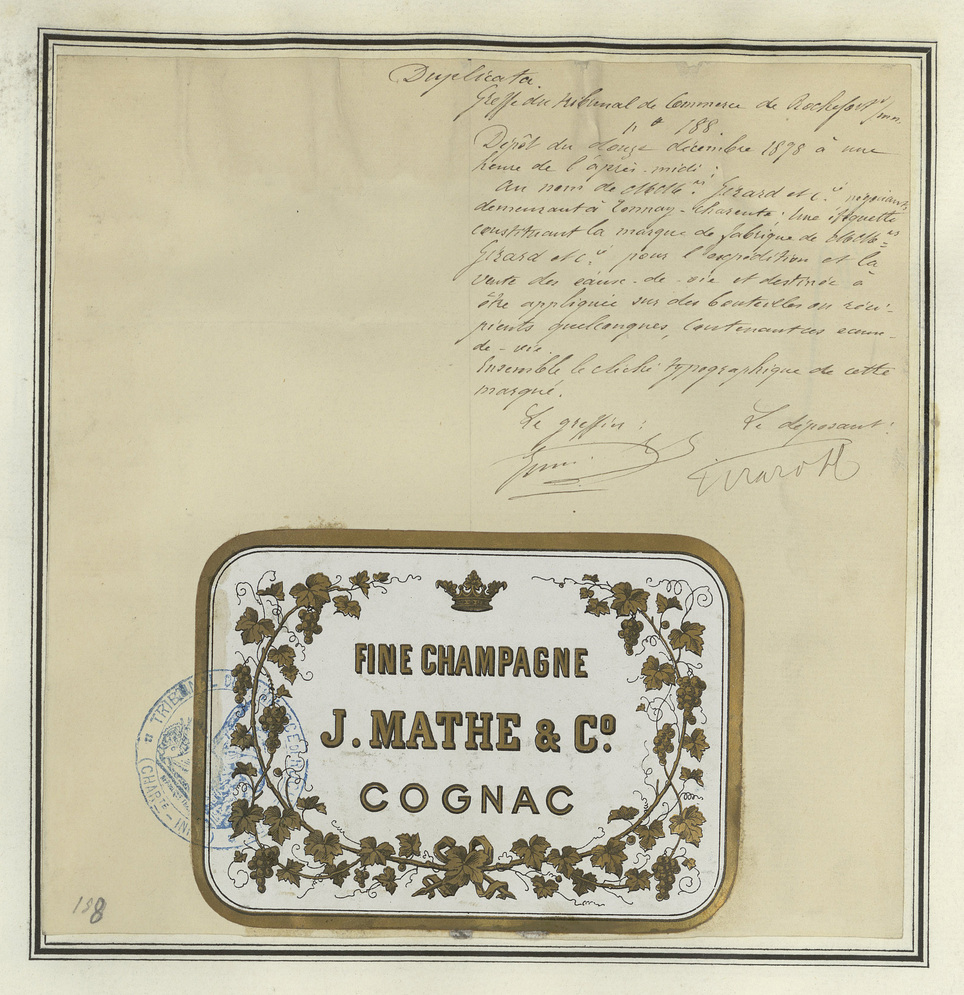 Duplicata
Greffe du tribunal de Commerce de Rochefort s/mer.
n° 188.
Dépôt du douze décembre 1898 à une
heure de l'après-midi :
au nom de MM.rs Girard et C.ie négociants
demeurant à Tonnay-Charente : Une étiquette
constituant la marque de fabrique de MM.rs
Girard et C.ie pour l'expédition et la
vente des eaux-de-vie et destinée à
être appliquée sur des bouteilles ou réci-
pients quelconques, contenant ces eaux-
de-vie.
Ensemble le cliché typographique de cette
marque.
Le greffier : Le déposant :
Girard
FINE CHAMPAGNE
J. MATHE & Cº.
COGNAC
TRIBUNAL DE
(CHARTE - INF
188